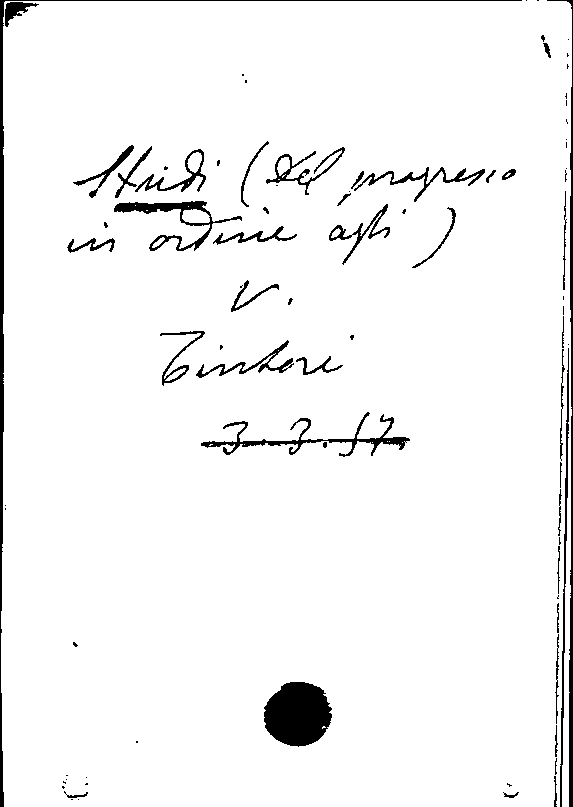 Studi (Del progresso
in ordine agli)
V.
Tintori
3.3.57.